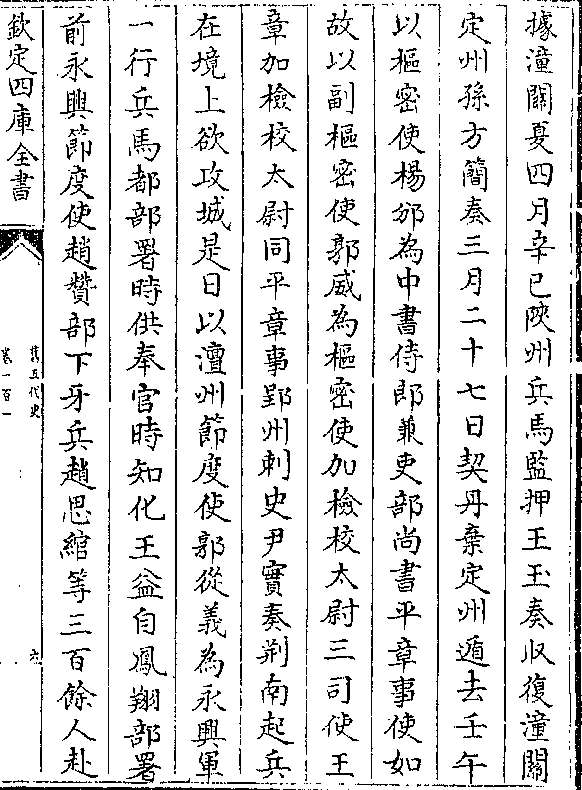 據潼關夏四月辛巳陜州兵馬監押王玉奏收復潼關
定州孫方簡奏三月二十七日契丹棄定州遁去壬午
以樞密使楊邠為中書侍郎兼吏部尚書平章事使如
故以副樞密使郭威為樞密使加檢校太尉三司使王
章加檢校太尉同平章事郢州刺史尹實奏荆南起兵
在境上欲攻城是日以澶州節度使郭從義為永興軍
一行兵馬都部署時供奉官時知化王益自鳳翔部署
前永興節度使趙贊部下牙兵趙思綰等三百餘人赴
欽定四庫全書
舊五代史
卷一百一
六